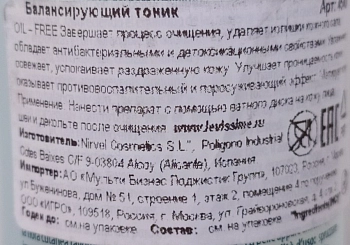 Балансирующий тоник
OIL - FREE Завершает процесс очищения, удаляет излишки кожного
обладает антибактериальными и детоксикационными свойствами
освежает, успокаивает раздраженную кожу. Улучшает проницаемость
оказывает противовоспалительный и поросуживающий эффект.
Применение: Нанести препарат с помощью ватного диска на кожу
шеи и декольте после очищения. www.levissime.ru
Изготовитель: Nirvel Cosmetics S.L., Poligono Industrial
Cotes Baixes C/F 9-03804 Alcoy (Alicante), Испания
Импортер: АО «Мульти Бизнес Лоджистик Групп», 107023, Россия,
ул Буженинова, дом № 51, строение 1, этаж 2, помещение 4
ООО «ИГРО», 109518, Россия, г. Москва, ул. Грайвороновская, д. 4
Годен до: Состав:
см. на упаковке см. на упаковке